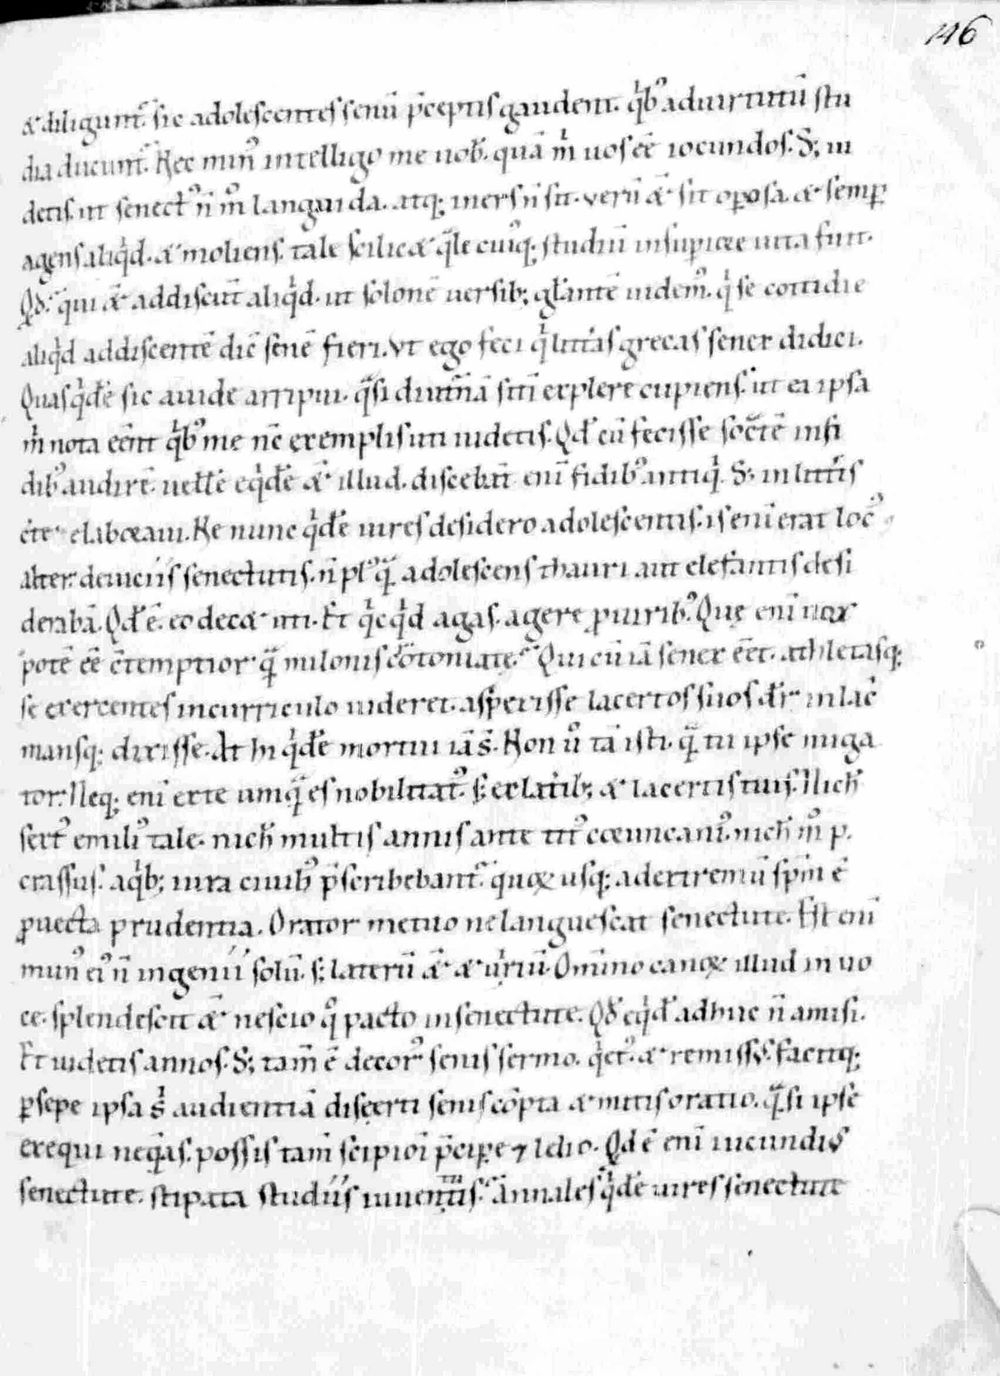 146
& diligunt᷒. sic adolescentes senū p̄ceptis gaudent. q̇b᷒ ad uirtutū stu
dia ducunt᷒. Nec min᷒ intelligo me uob̄. quā m̄ uos eē iocundos. S; ui
detis. ut senect᷒ n̄ m̊ languida. atq; iners n̄ sit. verū &̄ sit oꝑosa. & semꝑ
agens aliq̇d. & moliens. tale scilic& q̄le cuiq; studiū in supiore uita fuit.
Qd᷒. qui &̄ addiscūt aliq̇d. ut solonē uersib; gl̄antē uidem᷒. q̇ se cottidie
aliq̇d addiscentē dic̄ senē fieri. Vt ego feci q̇ litt̄as grecas senex didici.
Quas q̇dē sic auide arripui. q̄si diut̄nā sitī explere cupiens. ut ea ipsa
m̄ nota eēnt q̇b᷒ me nc̄ exemplis uti uidetis. Qd̄ cū fecisse soc̄tē in fi
dib᷒ audirē. uellē eq̇dē &̄ illud. discebāt enī fidib᷒ antiq̇. S; in litt̄is
c̄te elaboraui. Ne nunc q̇dē uires desidero adolescentis. is enī erat loc᷒
alter. de uiciis senectutis. n̄ pl᷒ q̄ adolescens thauri aut elefantis desi
derabā. Qd̄ ē. eo dec& uti. Et q̇cq̇d agas. agere ꝓ uirib᷒. Quę enī uox
potē eē c̄temptior q̄ milonis c̄toniatę. Qui cū iā senex eēt. athletasq;
se exercentes in curriculo uideret. aspexisse lacertos suos d̄r̄. in lac̄
mansq; dixisse. At hi q̇dē mortui iā s̄. Non ů tā isti. q̄ tu ipse nuga
tor. Neq; enī ex te umq̄ es nobilitat᷒. s; ex lat̄ib; & lacertis tuis. Nich̄
sext᷒ emili᷒ tale. nich̄ multis annis ante tit᷒ coruncani᷒. nich̄ m̊ p.
crassus. a q̇b; iura ciuib᷒ p̄scribebant᷒. quoꝝ usq; ad extremū sp̄m ē
ꝓuecta prudentia. Orator metuo ne languescat senectute. Est enī
mun᷒ ei᷒ n̄ ingenii solū. s; laterū &̄ & uiriū. Omīno canoꝝ illud in uo
ce. splendescit &̄ nescio q̊ pacto in senectute. Qd̄ eq̇dē adhuc n̄ amisi.
Et uidetis annos. S; tam̄ ē decor᷒ senis sermo. q̇et᷒ & remissus. facitq;
ꝑ sepe ipsa s̄ audientiā diserti senis cōpta & mitis oratio. q̄ si ipse
exequi neq̇as. possis tam̄ scipioī p̄ciꝑe ⁊ lelio. Qd̄ ē enī iucundi᷒
senectute. stipata studiis iuuentutis. Annales q̇dē uires senectuti